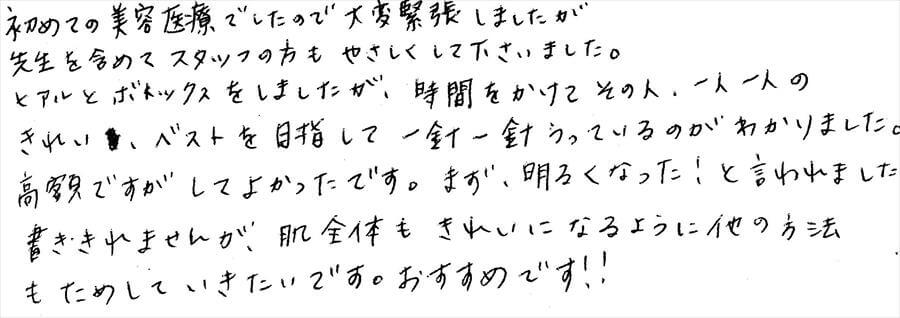 初めての美容医療でしたので大変緊張しましたが
先生を含めてスタッフの方もやさしくして下さいました。
ヒアルとボトックスをしましたが、時間をかけてその人、一人一人の
きれい、ベストを目指して一針一針うっているのがわかりました。
高額ですがしてよかったです。まず、明るくなった!と言われました
書ききれませんが、肌全体もきれいになるように他の方法
もためしていきたいです。おすすめです!!